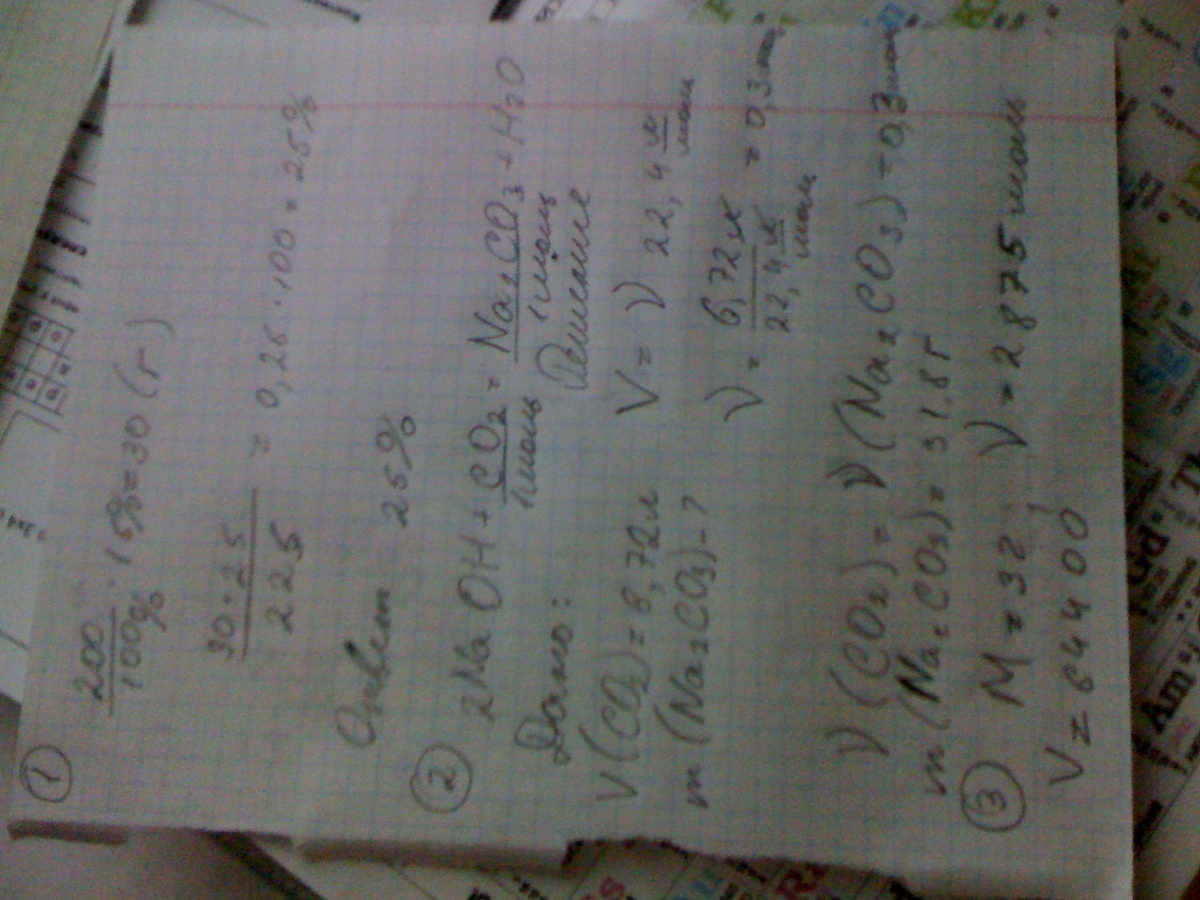 ①
200/100% · 15% = 30 (г)
30 + 25 / 225 = 0,25 · 100 = 25%
Ответ 25%
②
2NaOH + CO₂ = Na₂CO₃ + H₂O
1моль 1моль
Дано: Решение
V(CO₂) = 6,72л V = ν 22,4 л/моль
m(Na₂CO₃) - ? ν = 6,72л / 22,4 л/моль = 0,3 моль
ν(CO₂) = ν(Na₂CO₃) = 0,3 моль
m(Na₂CO₃) = 31,8г
③
M = 32 ν = 2,875 моль
V = 64400
Gd
Am